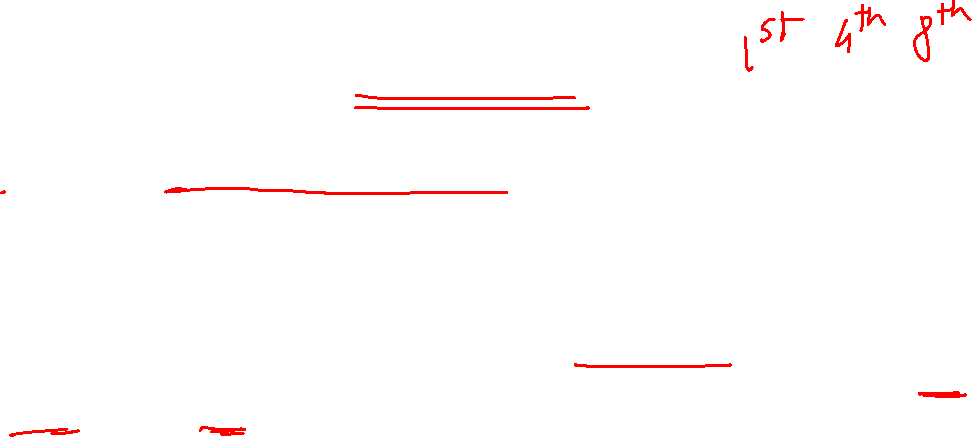 1st 4th 8th